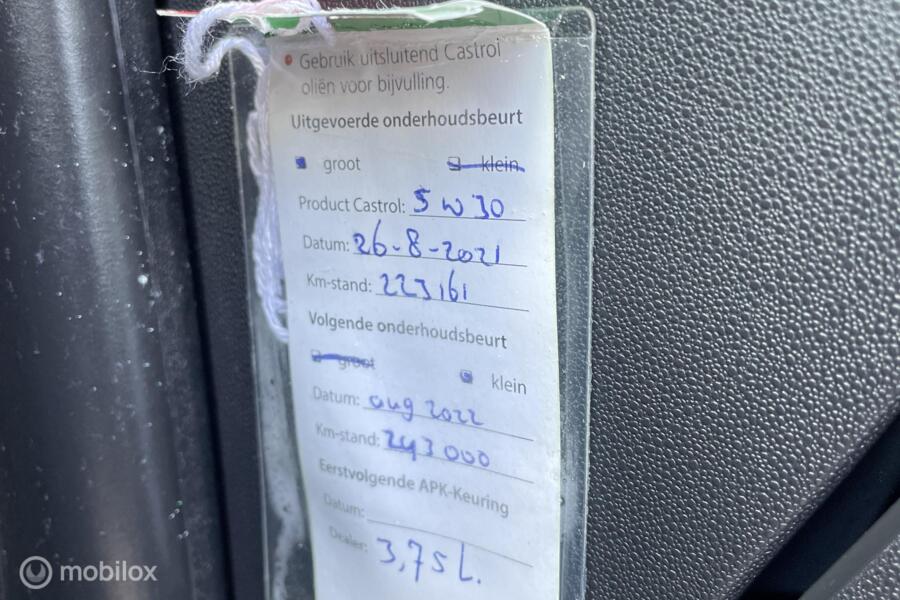 Gebruik uitsluitend Castrol
oliën voor bijvulling.
Uitgevoerde onderhoudsbeurt
groot klein
Product Castrol: 5 W 30
Datum: 26-8-2021
Km-stand: 223161
Volgende onderhoudsbeurt
groot klein
Datum: aug 2022
Km-stand: 243000
Eerstvolgende APK-Keuring
Datum:
Dealer: 3,75 L.
mobilox